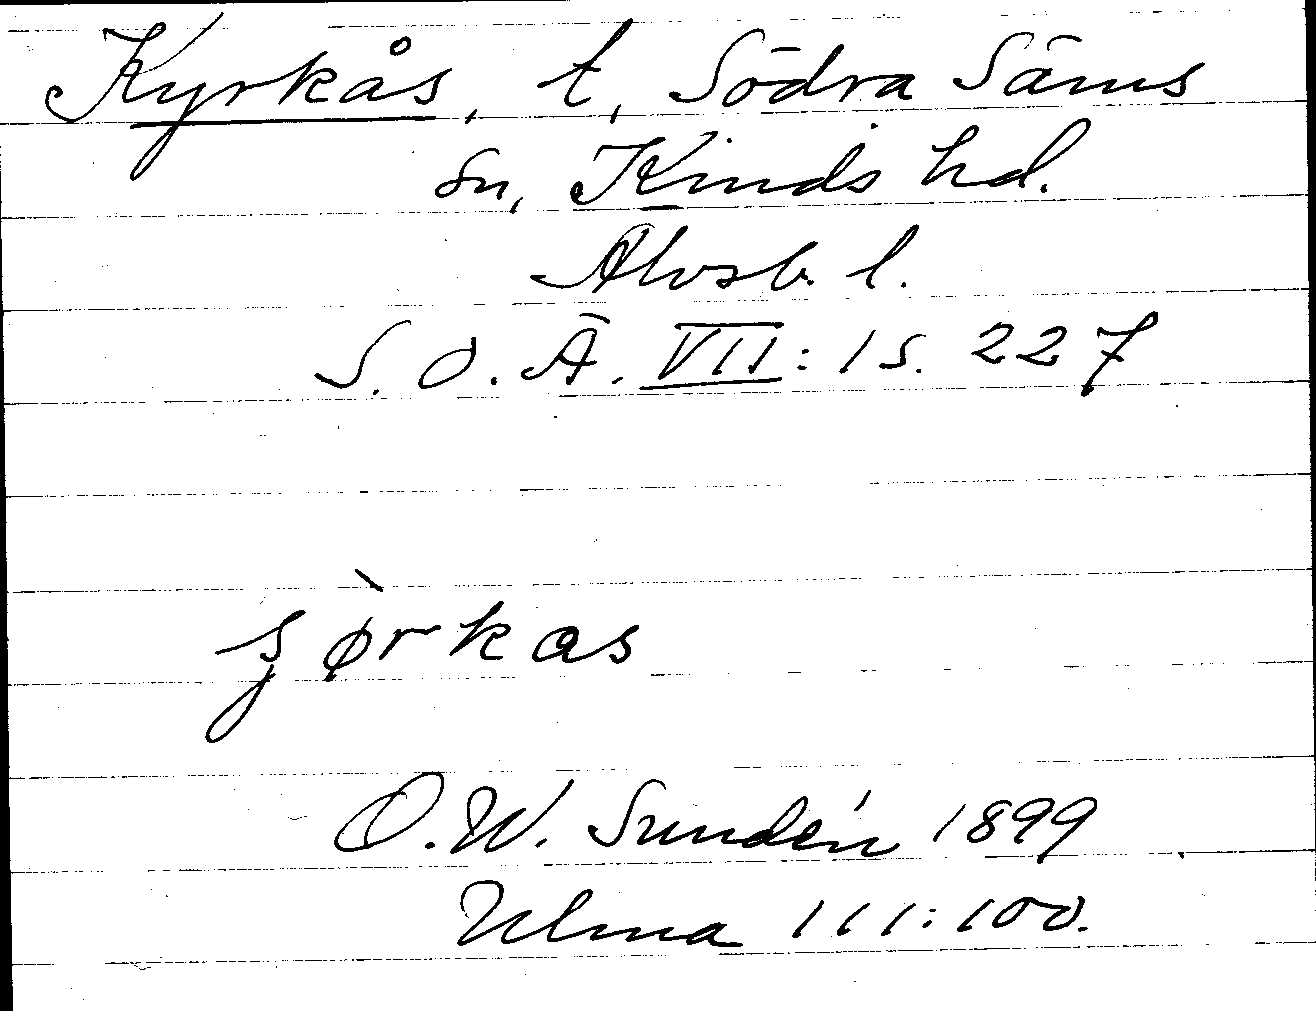 Kyrkås, t, Södra Säms
sn, Kinds hd.
Älvsb. l.
S. O. Ä. VII: 1 s. 227
ʂø̀rkas
O. W. Sundén 1899
Ulma 111:100.